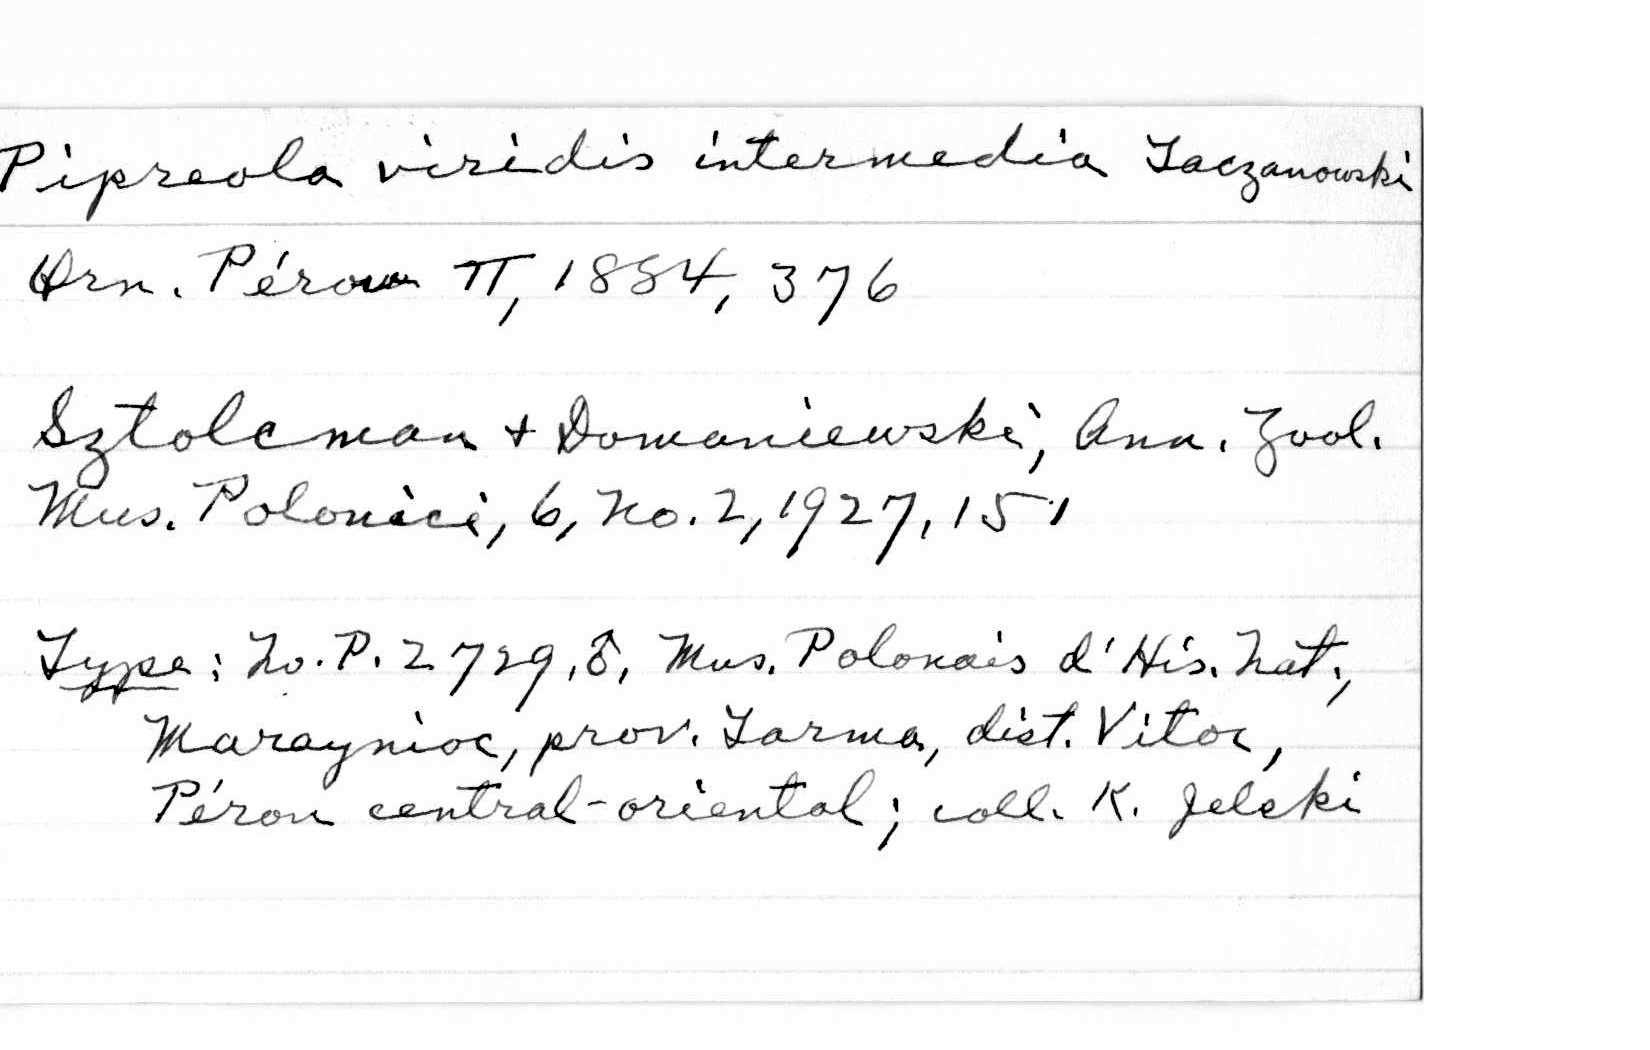 Pipreola viridis intermedia Taczanowski
Orn. Pérou II, 1884, 376
Sztolcman + Domaniewski, Ann. Zool.
Mus. Polonici, 6, No. 2, 1927, 151
Type: No. P. 2729, ♂, Mus. Polonais d'His. Nat.,
Maraynioc, prov. Tarma, dist. Vitoc,
Pérou central-oriental; coll. K. Jelski